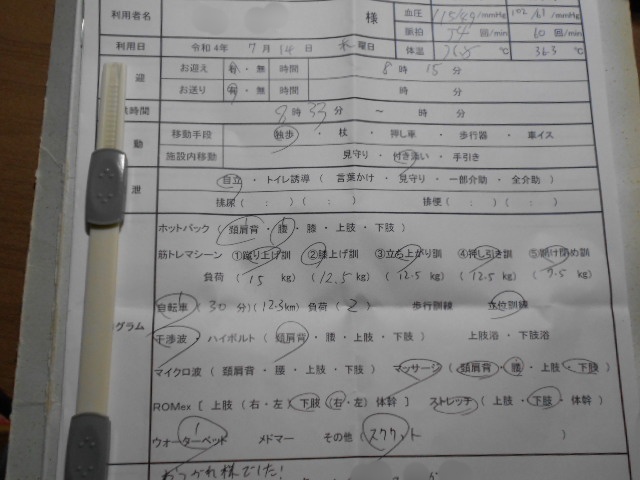 利用者名 様 血圧 115/69/mmHg 102/61/mmHg
脈拍 74 回/min 60 回/min
利用日 令和4年 7月 14日 曜日 体温 36.5 ℃ 36.3 ℃
迎 お迎え 有・無 時間 8時 15分
お送り 有・無 時間 時 分
時間 8時 33分 ～ 時 分
動 移動手段 独歩・杖・押し車・歩行器・車イス
施設内移動 見守り・付き添い・手引き
泄 自立・トイレ誘導（言葉かけ・見守り・一部介助・全介助）
排尿（ : ）（ : ） 排便（ : ）（ : ）
ホットパック（頚肩背・腰・膝・上肢・下肢）
筋トレマシーン ①蹴り上げ訓 ②膝上げ訓 ③立ち上がり訓 ④押し引き訓 ⑤開け閉め訓
負荷（15 kg）（12.5 kg）（12.5 kg）（12.5 kg）（7.5 kg）
グラム 自転車（30分）（12.3km）負荷（2） 歩行訓練 立位訓練
干渉波・ハイボルト（頚肩背・腰・上肢・下肢） 上肢浴・下肢浴
マイクロ波（頚肩背・腰・上肢・下肢） マッサージ（頚肩背・腰・上肢・下肢）
ROMex［上肢（右・左）下肢（右・左）体幹］ ストレッチ（上肢・下肢・体幹）
ウォーターベッド メドマー その他（スクワット ）
おつかれ様でした!